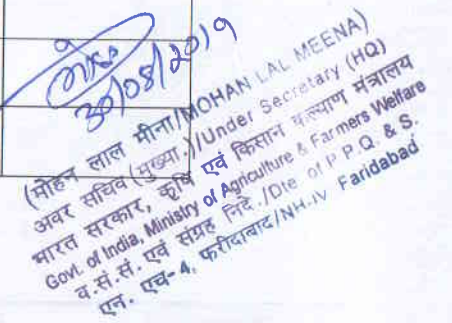 30/08/2019
(मोहन लाल मीना/MOHAN LAL MEENA)
अवर सचिव (मुख्या.)/Under Secretary (HQ)
भारत सरकार, कृषि एवं किसान कल्याण मंत्रालय
Govt. of India, Ministry of Agriculture & Farmers Welfare
व.सं.सं. एवं संग्रह निदे./Dte. of P P.Q. & S.
एन. एच-4, फरीदाबाद/NH-IV Faridabad